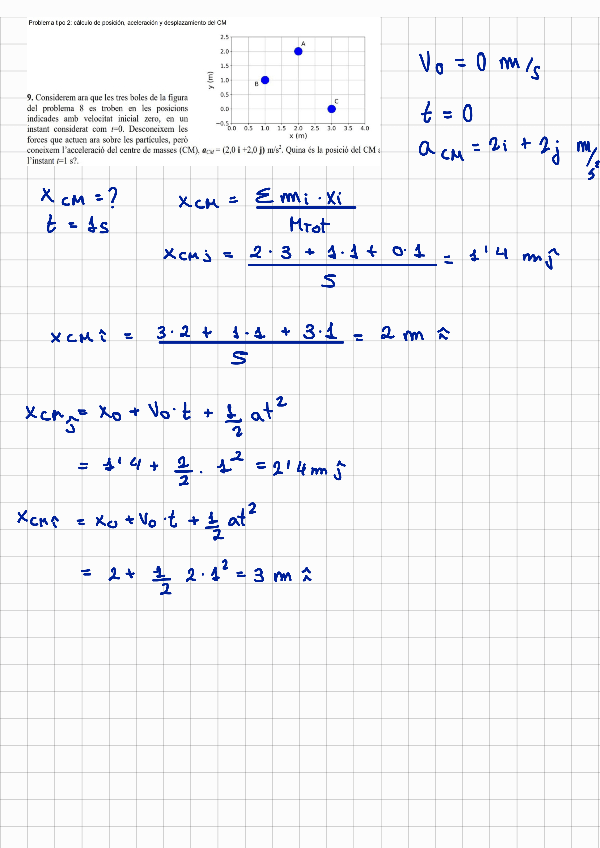 Problema tipo 2: cálculo de posición, aceleración y desplazamiento del CM
9. Considerem ara que les tres boles de la figura
del problema 8 es troben en les posicions
indicades amb velocitat inicial zero, en un
instant considerat com t=0. Desconeixem les
forces que actuen ara sobre les partícules, però
coneixem l'acceleració del centre de masses (CM), aCM = (2,0 i +2,0 j) m/s². Quina és la posició del CM a
l'instant t=1 s?
2.5
2.0
1.5
1.0
0.5
0.0
−0.5
y (m)
A
B
C
0.0 0.5 1.0 1.5 2.0 2.5 3.0 3.5 4.0
x (m)
V0 = 0 m/s
t = 0
aCM = 2i + 2j m/s²
xCM = ?
t = 1s
xCM = Σ mi · xi / MTot
xCMj = 2·3 + 1·1 + 0·1 / 5 = 1'4 m ĵ
xCM î = 3·2 + 1·1 + 3·1 / 5 = 2 m î
xCM ĵ = x0 + V0·t + 1/2 at²
= 1'4 + 2/2 · 1² = 2'4 m ĵ
xCM î = x0 + V0·t + 1/2 at²
= 2 + 1/2 2·1² = 3 m î